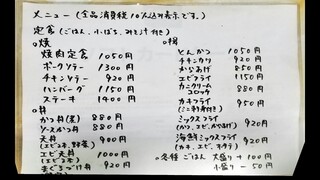 メニュー (全品消費税10%込み表示です。)
定食 (ごはん、小ばち、みそ汁付き)
○焼
焼肉定食 1050円
ポークソテー 1300円
チキンソテー 920円
ハンバーグ 1150円
ステーキ 1400円
○丼
かつ丼(並) 880円
ソースかつ丼 880円
天丼 900円
(エビ2本、野菜)
エビ天丼 1000円
(エビ4本)
まぐろづけ丼 920円
とんかつ 1050円
チキンカツ 920円
からあげ 850円
エビフライ 1150円
カニクリーム
コロッケ 880円
カキフライ 950円
ミックスフライ
(かつ、エビ、からあげ) 920円
海鮮ミックスフライ
(カキ、エビ、ホタテ) 920円
○各種ごはん 大盛り +100円
小盛り -50円